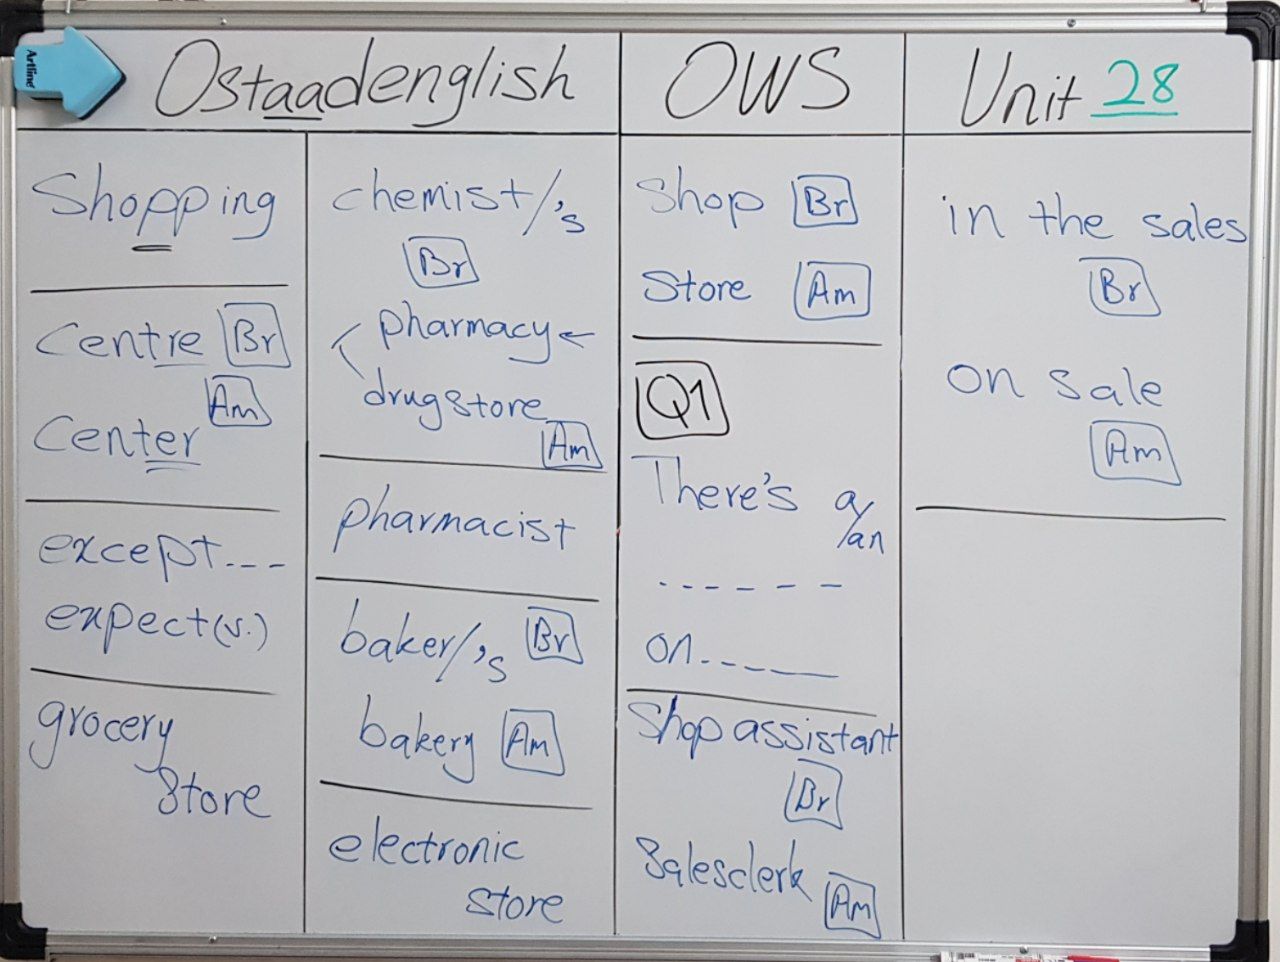 Artline
Ostaadenglish
OWS
Unit 28
Shopping
Centre Br
Am
Center
except...
expect (v.)
grocery
store
chemist/'s
Br
pharmacy
drugstore
Am
pharmacist
baker/'s Br
bakery Am
electronic
store
Shop Br
Store Am
Q1
There's a/an
on
Shop assistant
Br
Salesclerk Am
in the sales
Br
on sale
Am